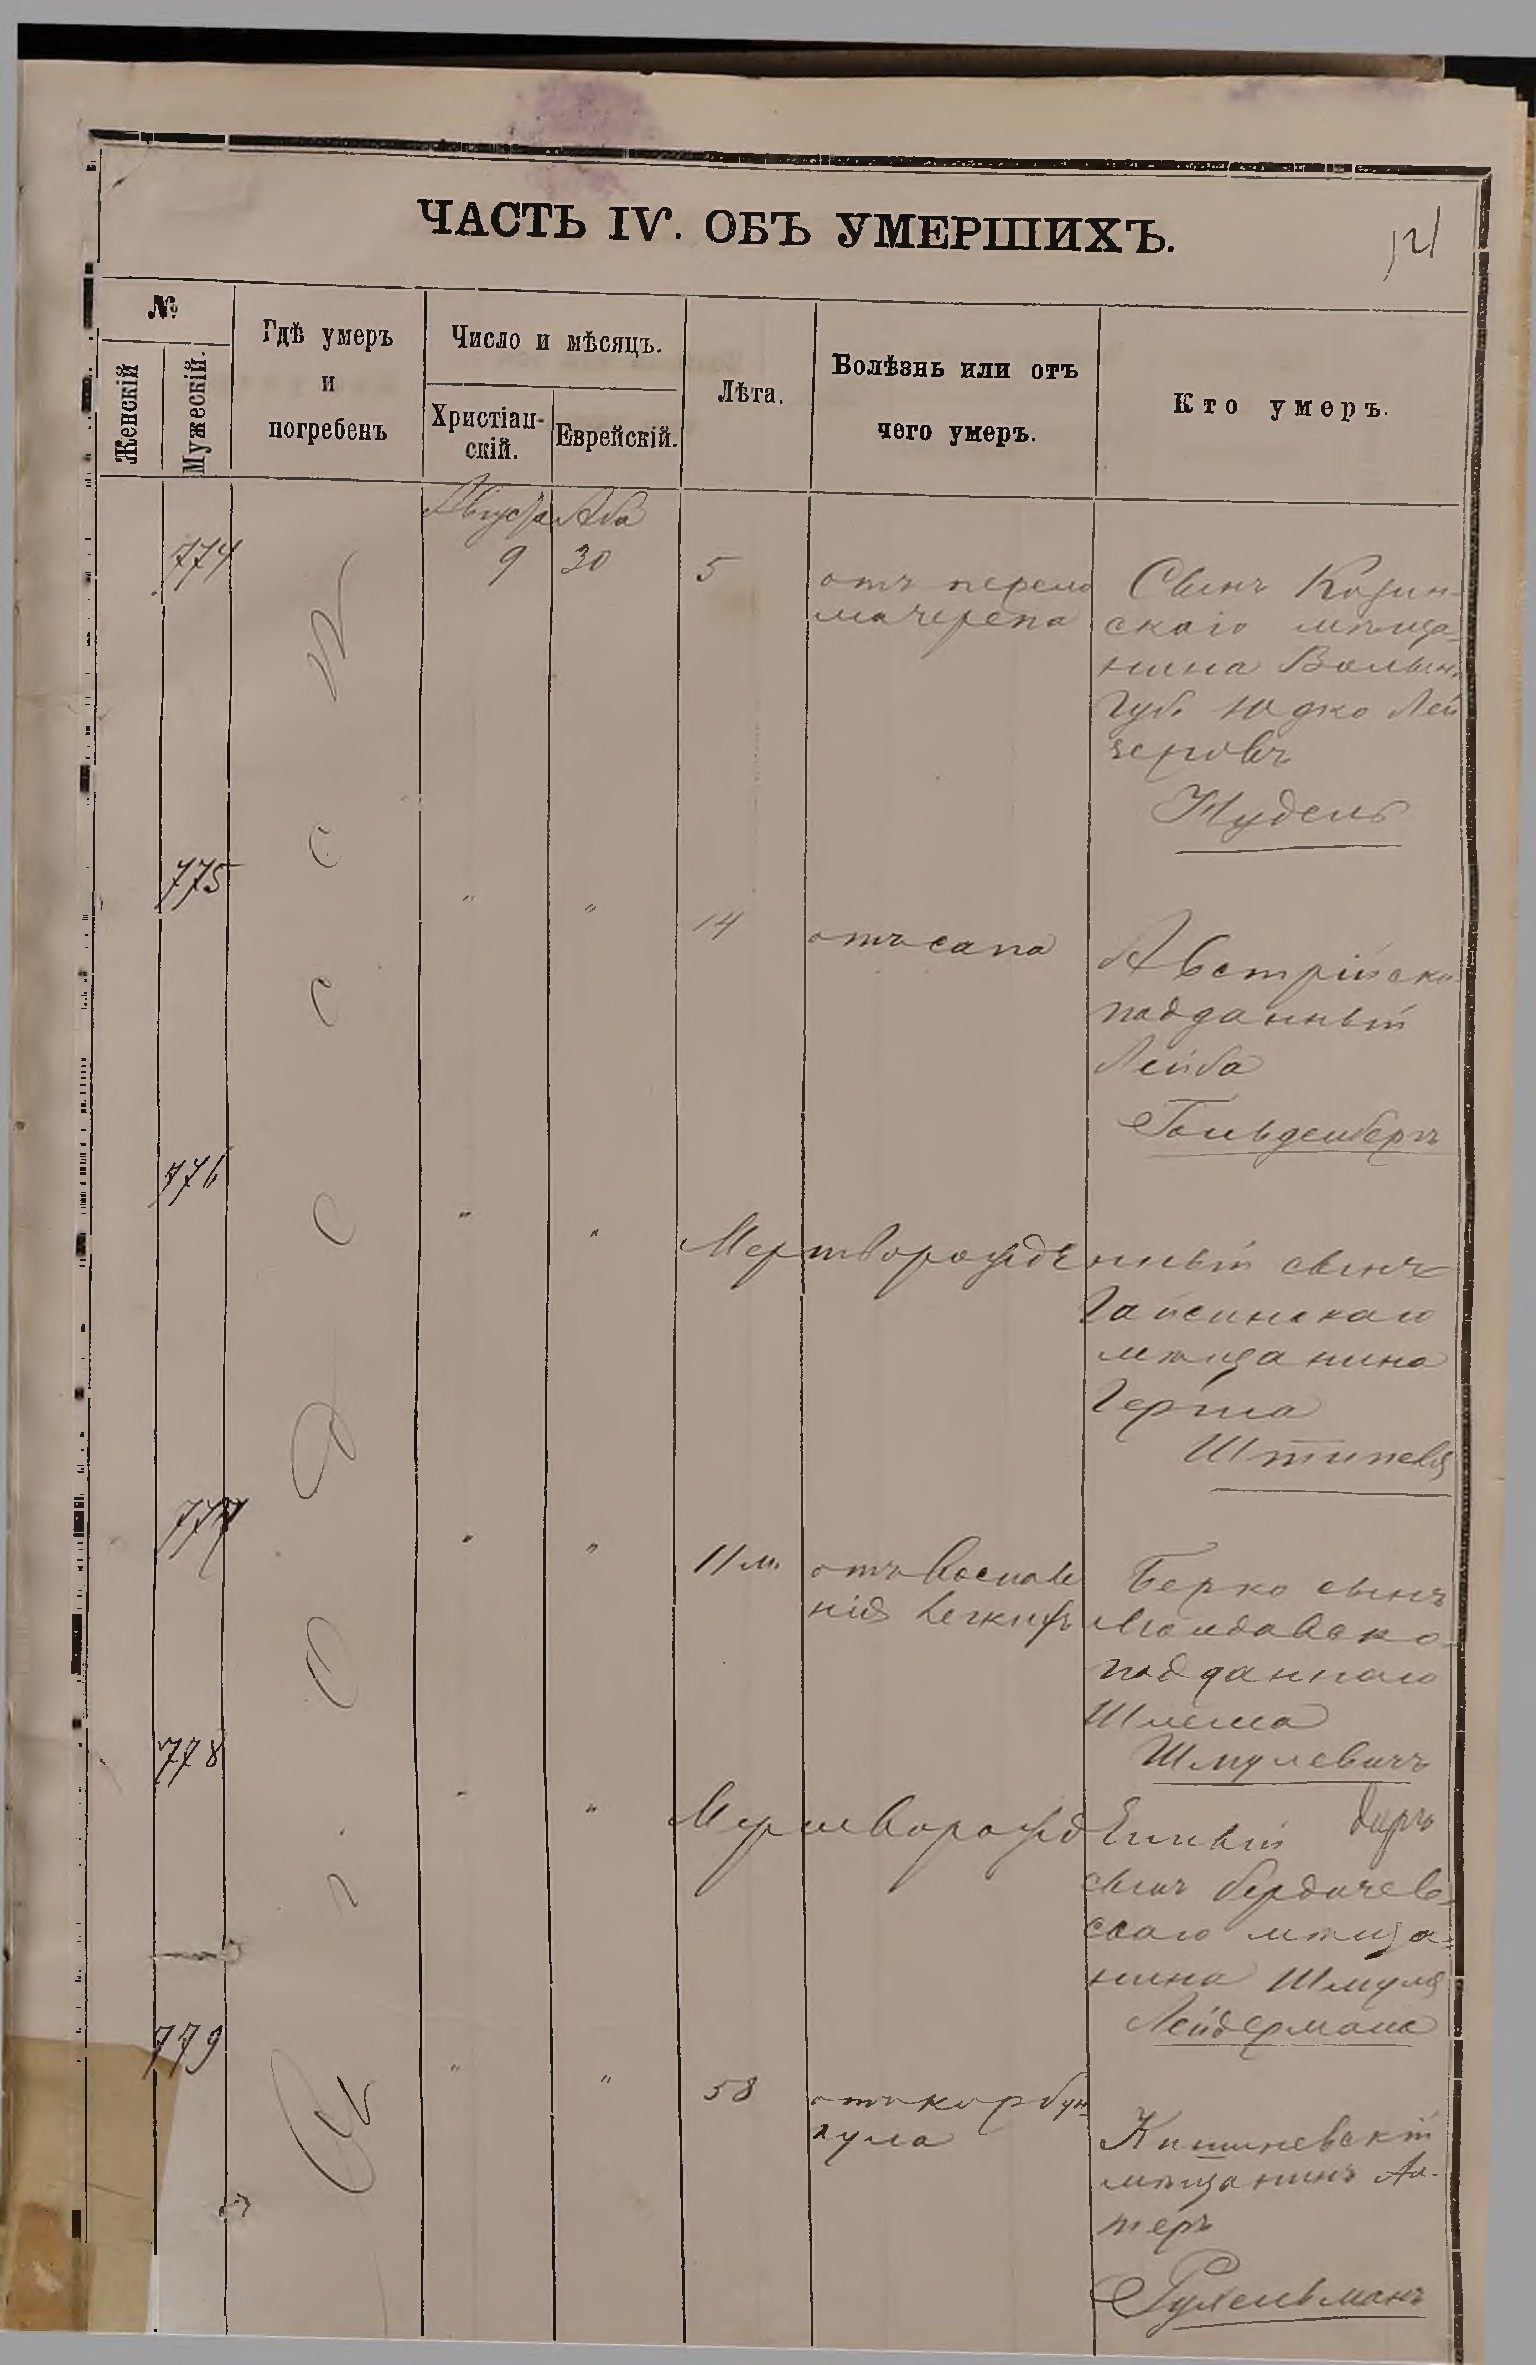 ЧАСТЬ IV. ОБЪ УМЕРШИХЪ.
121
№
Женскій
Мужескій.
Гдѣ умеръ
и
погребенъ
Число и мѣсяцъ.
Христіан-
скій.
Еврейскій.
Лѣта.
Болѣзнь или отъ
чего умеръ.
Кто умеръ.
Августа Ава
774 9 30 5 отъ перело
ма черепа
Сынъ Козин-
скаго мѣща-
нина Волын.
Губ. Юдко Лей
зеровъ
Нудель
775 " " 14 отъ сапа
Австрійско
подданный
Лейба
Гольденбергъ
776 " " Мертворожденный сынъ
Гайсинскаго
мѣщанина
Герша
777 " " 11 м. отъ воспале
нія легкихъ
Берко сынъ
Молдавско-
подданнаго
Шлема
Шмулевичъ
778 " " Мертворожденный
сынъ бердичев-
скаго мѣща-
нина Шмуля
Лейдермана
779 " " 58 отъ карбун-
кула
Кишиневскій
мѣщанинъ Ал-
теръ
въ Одессѣ